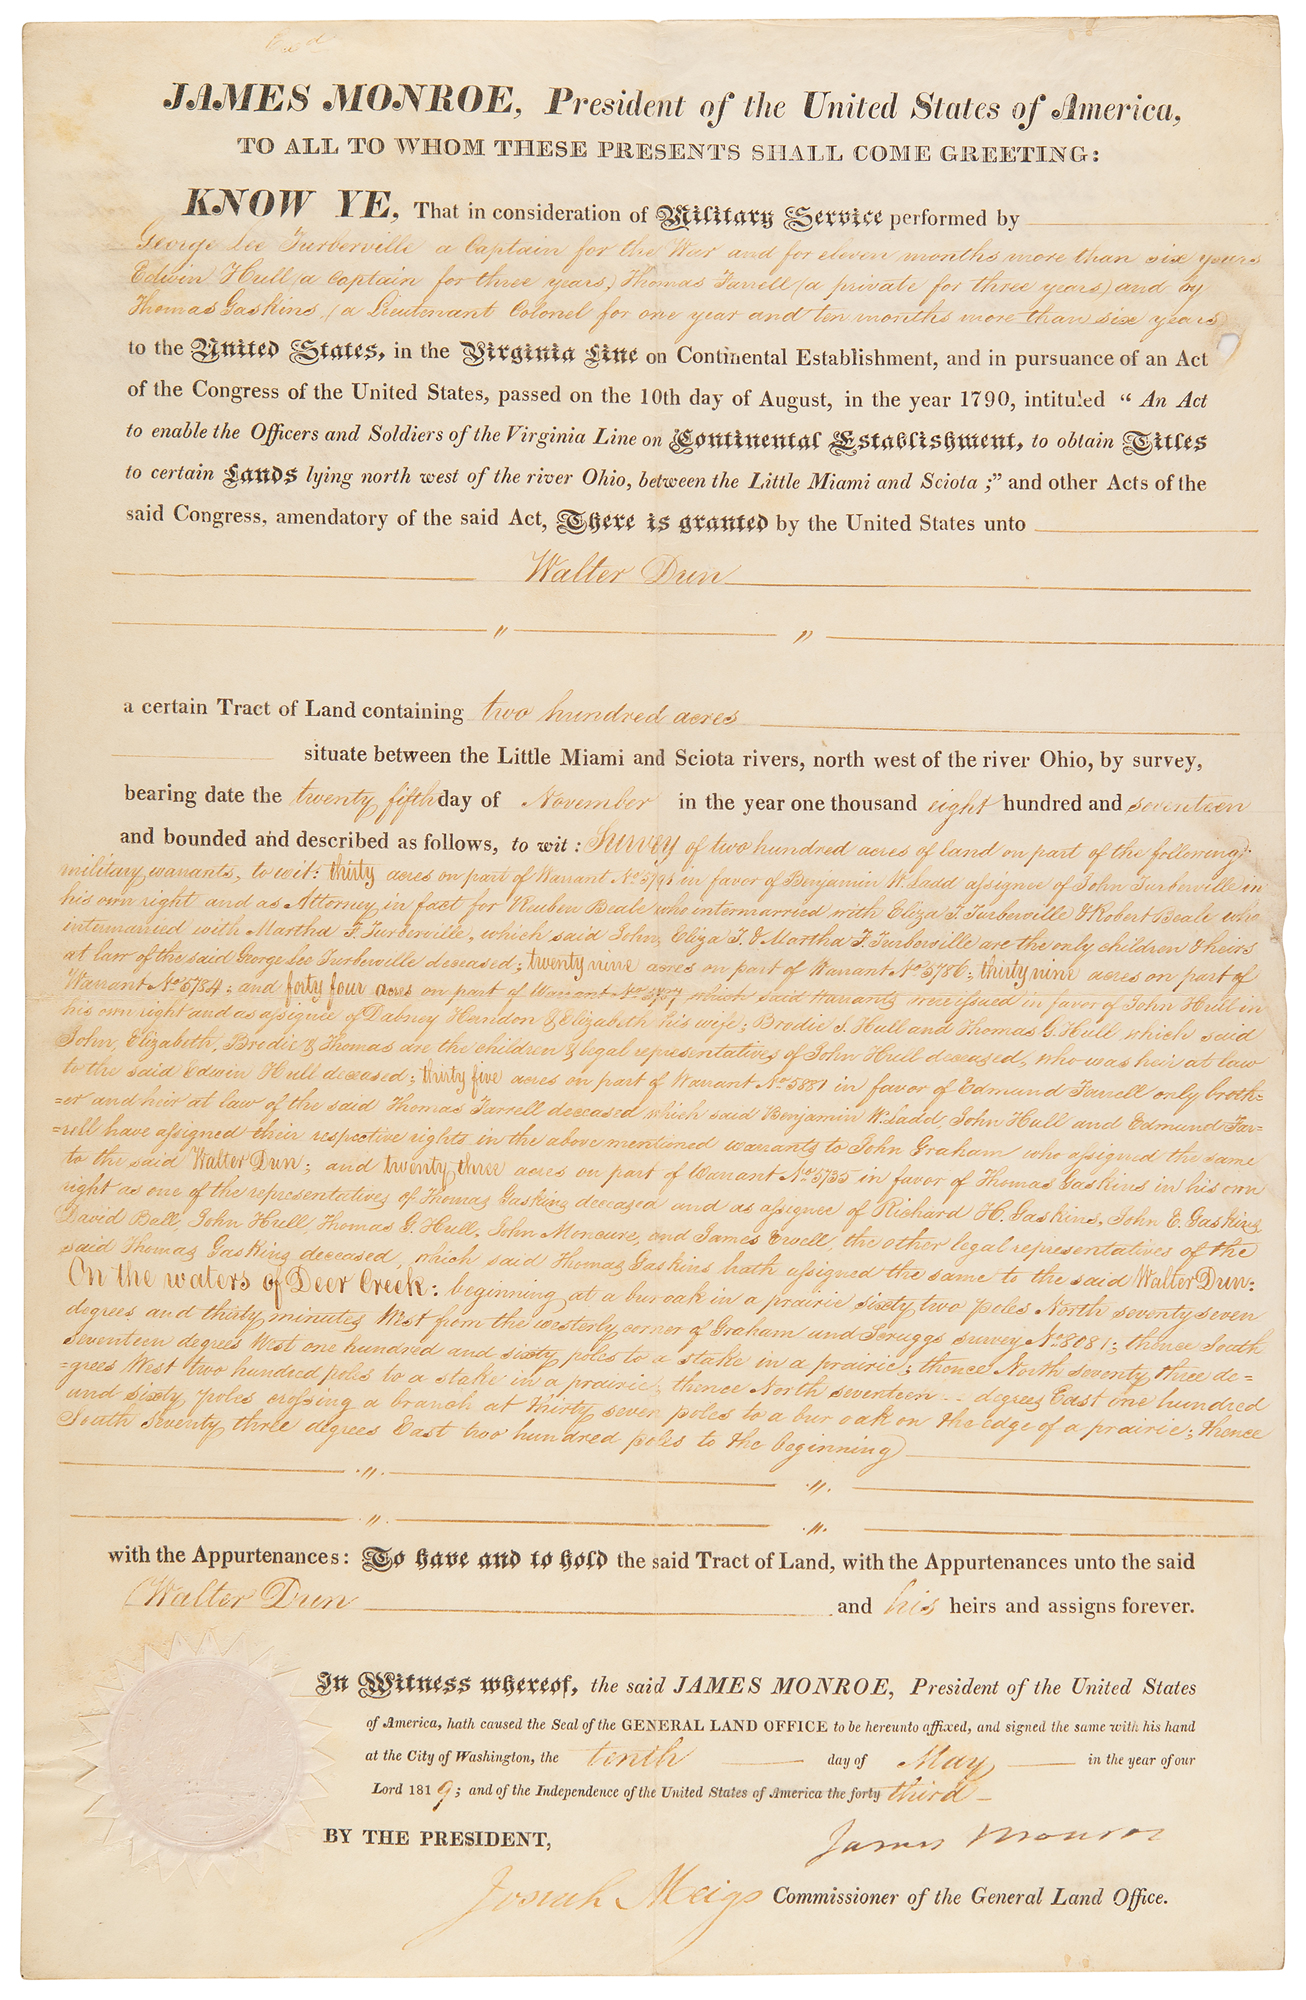 JAMES MONROE, President of the United States of America,
TO ALL TO WHOM THESE PRESENTS SHALL COME GREETING:
KNOW YE, That in consideration of Military Service performed by
George Lee Turberville a Captain for the War and for eleven months more than six years
Edwin Hull (a captain for three years) Thomas Farrell (a private for three years) and by
Thomas Gaskins, (a Lieutenant Colonel for one year and ten months more than six years)
to the United States, in the Virginia Line on Continental Establishment, and in pursuance of an Act
of the Congress of the United States, passed on the 10th day of August, in the year 1790, intituled “ An Act
to enable the Officers and Soldiers of the Virginia Line on Continental Establishment, to obtain Titles
to certain Lands lying north west of the river Ohio, between the Little Miami and Sciota ;” and other Acts of the
said Congress, amendatory of the said Act, There is granted by the United States unto
Walter Dun
" "
a certain Tract of Land containing two hundred acres
situate between the Little Miami and Sciota rivers, north west of the river Ohio, by survey,
bearing date the twenty fifth day of November in the year one thousand eight hundred and seventeen
and bounded and described as follows, to wit : Survey of two hundred acres of land on part of the following
military warrants, to wit: thirty acres on part of Warrant No 5791 in favor of Benjamin W. Ladd assignee of John Turberville in
his own right and as Attorney in fact for Reuben Beale who intermarried with Eliza T. Turberville & Robert Beale who
intermarried with Martha F. Turberville, which said John, Eliza T. & Martha F. Turberville are the only children & heirs
at law of the said George Lee Turberville deceased; twenty nine acres on part of Warrant No 5786; thirty nine acres on part of
Warrant No 5784; and forty four acres on part of Warrant No which said warrants were issued in favor of John Hull in
his own right and as assignee of Dabney Herndon & Elizabeth his wife; Brodie S. Hull and Thomas G. Hull which said
John, Elizabeth, Brodie & Thomas are the children & legal representatives of John Hull deceased, who was heir at law
to the said Edwin Hull deceased; thirty five acres on part of Warrant No 5881 in favor of Edmund Farrell only broth=
=er and heir at law of the said Thomas Farrell deceased which said Benjamin W. Ladd, John Hull and Edmund Far=
=rell have assigned their respective rights in the above mentioned warrants to John Graham who assigned the same
to the said Walter Dun; and twenty three acres on part of Warrant No 5735 in favor of Thomas Gaskins in his own
right as one of the representatives of Thomas Gaskins deceased and as assignee of Richard H. Gaskins, John E. Gaskins,
David Ball, John Hull, Thomas G. Hull, John Moncure, and James Ewell, the other legal representatives of the
said Thomas Gaskins deceased, which said Thomas Gaskins hath assigned the same to the said Walter Dun:
On the waters of Deer Creek: beginning at a bur oak in a prairie sixty two poles North seventy seven
degrees and thirty minutes West from the westerly corner of Graham and Scruggs survey No 8081; thence South
seventeen degrees West one hundred and sixty poles to a stake in a prairie; thence North seventy three de=
=grees West two hundred poles to a stake in a prairie; thence North seventeen degrees East one hundred
and sixty poles crossing a branch at thirty seven poles to a bur oak on the edge of a prairie; thence
South seventy three degrees East two hundred poles to the beginning
" "
" "
with the Appurtenances: To have and to hold the said Tract of Land, with the Appurtenances unto the said
Walter Dun and his heirs and assigns forever.
In Witness whereof, the said JAMES MONROE, President of the United States
of America, hath caused the Seal of the GENERAL LAND OFFICE to be hereunto affixed, and signed the same with his hand
at the City of Washington, the tenth day of May in the year of our
Lord 1819; and of the Independence of the United States of America the forty third
BY THE PRESIDENT,
James Monroe
Josiah Meigs Commissioner of the General Land Office.